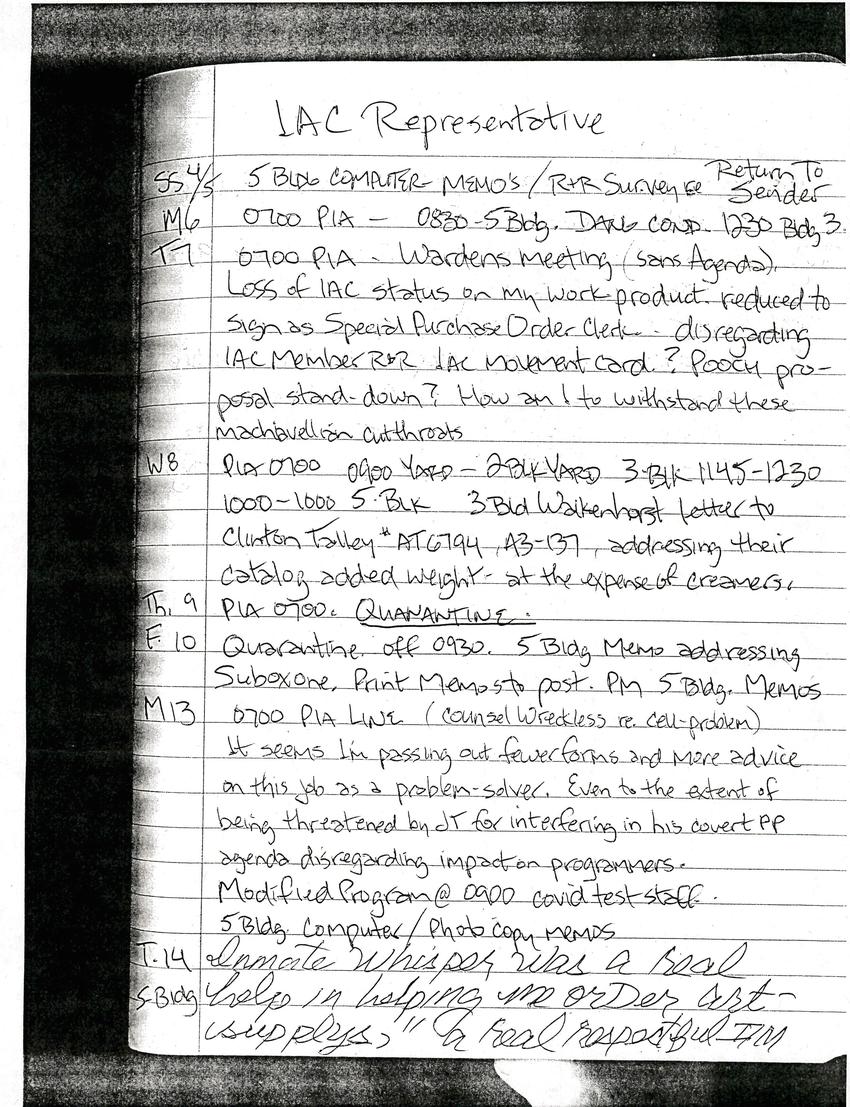 IAC Representative
SS 4/5 5 BLDG COMPUTER MEMO'S / R+R Survey re Return To Sender
M6 0700 PIA - 0830-5 Bldg. DANG COND. 1230 Bldg 3.
T7 0700 PIA - Wardens Meeting (sans Agenda).
Loss of IAC status on my work product. reduced to
sign as Special Purchase Order Clerk - disregarding
IAC Member R&R IAC movement card? POOCH pro-
posal stand-down? How am I to withstand these
machiavellian cutthroats
W8 PIA 0700 0900 YARD - 2 BLK YARD 3-BLK 1145-1230
1000-1000 5-BLK 3 Bld Walkenhorst letter to
Clinton Talley #AT6794, A3-137, addressing their
catalog added weight - at the expense of creamers.
Th. 9 PIA 0700. QUARANTINE.
F. 10 Quarantine off 0930. 5 Bldg Memo addressing
Suboxone. Print Memos to post. PM 5 Bldg. Memos
M13 0700 PIA LINE (counsel Wreckless re. cell-problem)
It seems I'm passing out fewer forms and more advice
on this job as a problem-solver. Even to the extent of
being threatened by JT for interfering in his covert PP
agenda disregarding impact on programmers.
Modified Program @ 0900 covid test staff.
5 Bldg. Computer / Photo copy MEMOS
T. 14 Inmate Whisper was a real
5-Bldg help in helping me orDer art-
supplys," a real respectful I/M